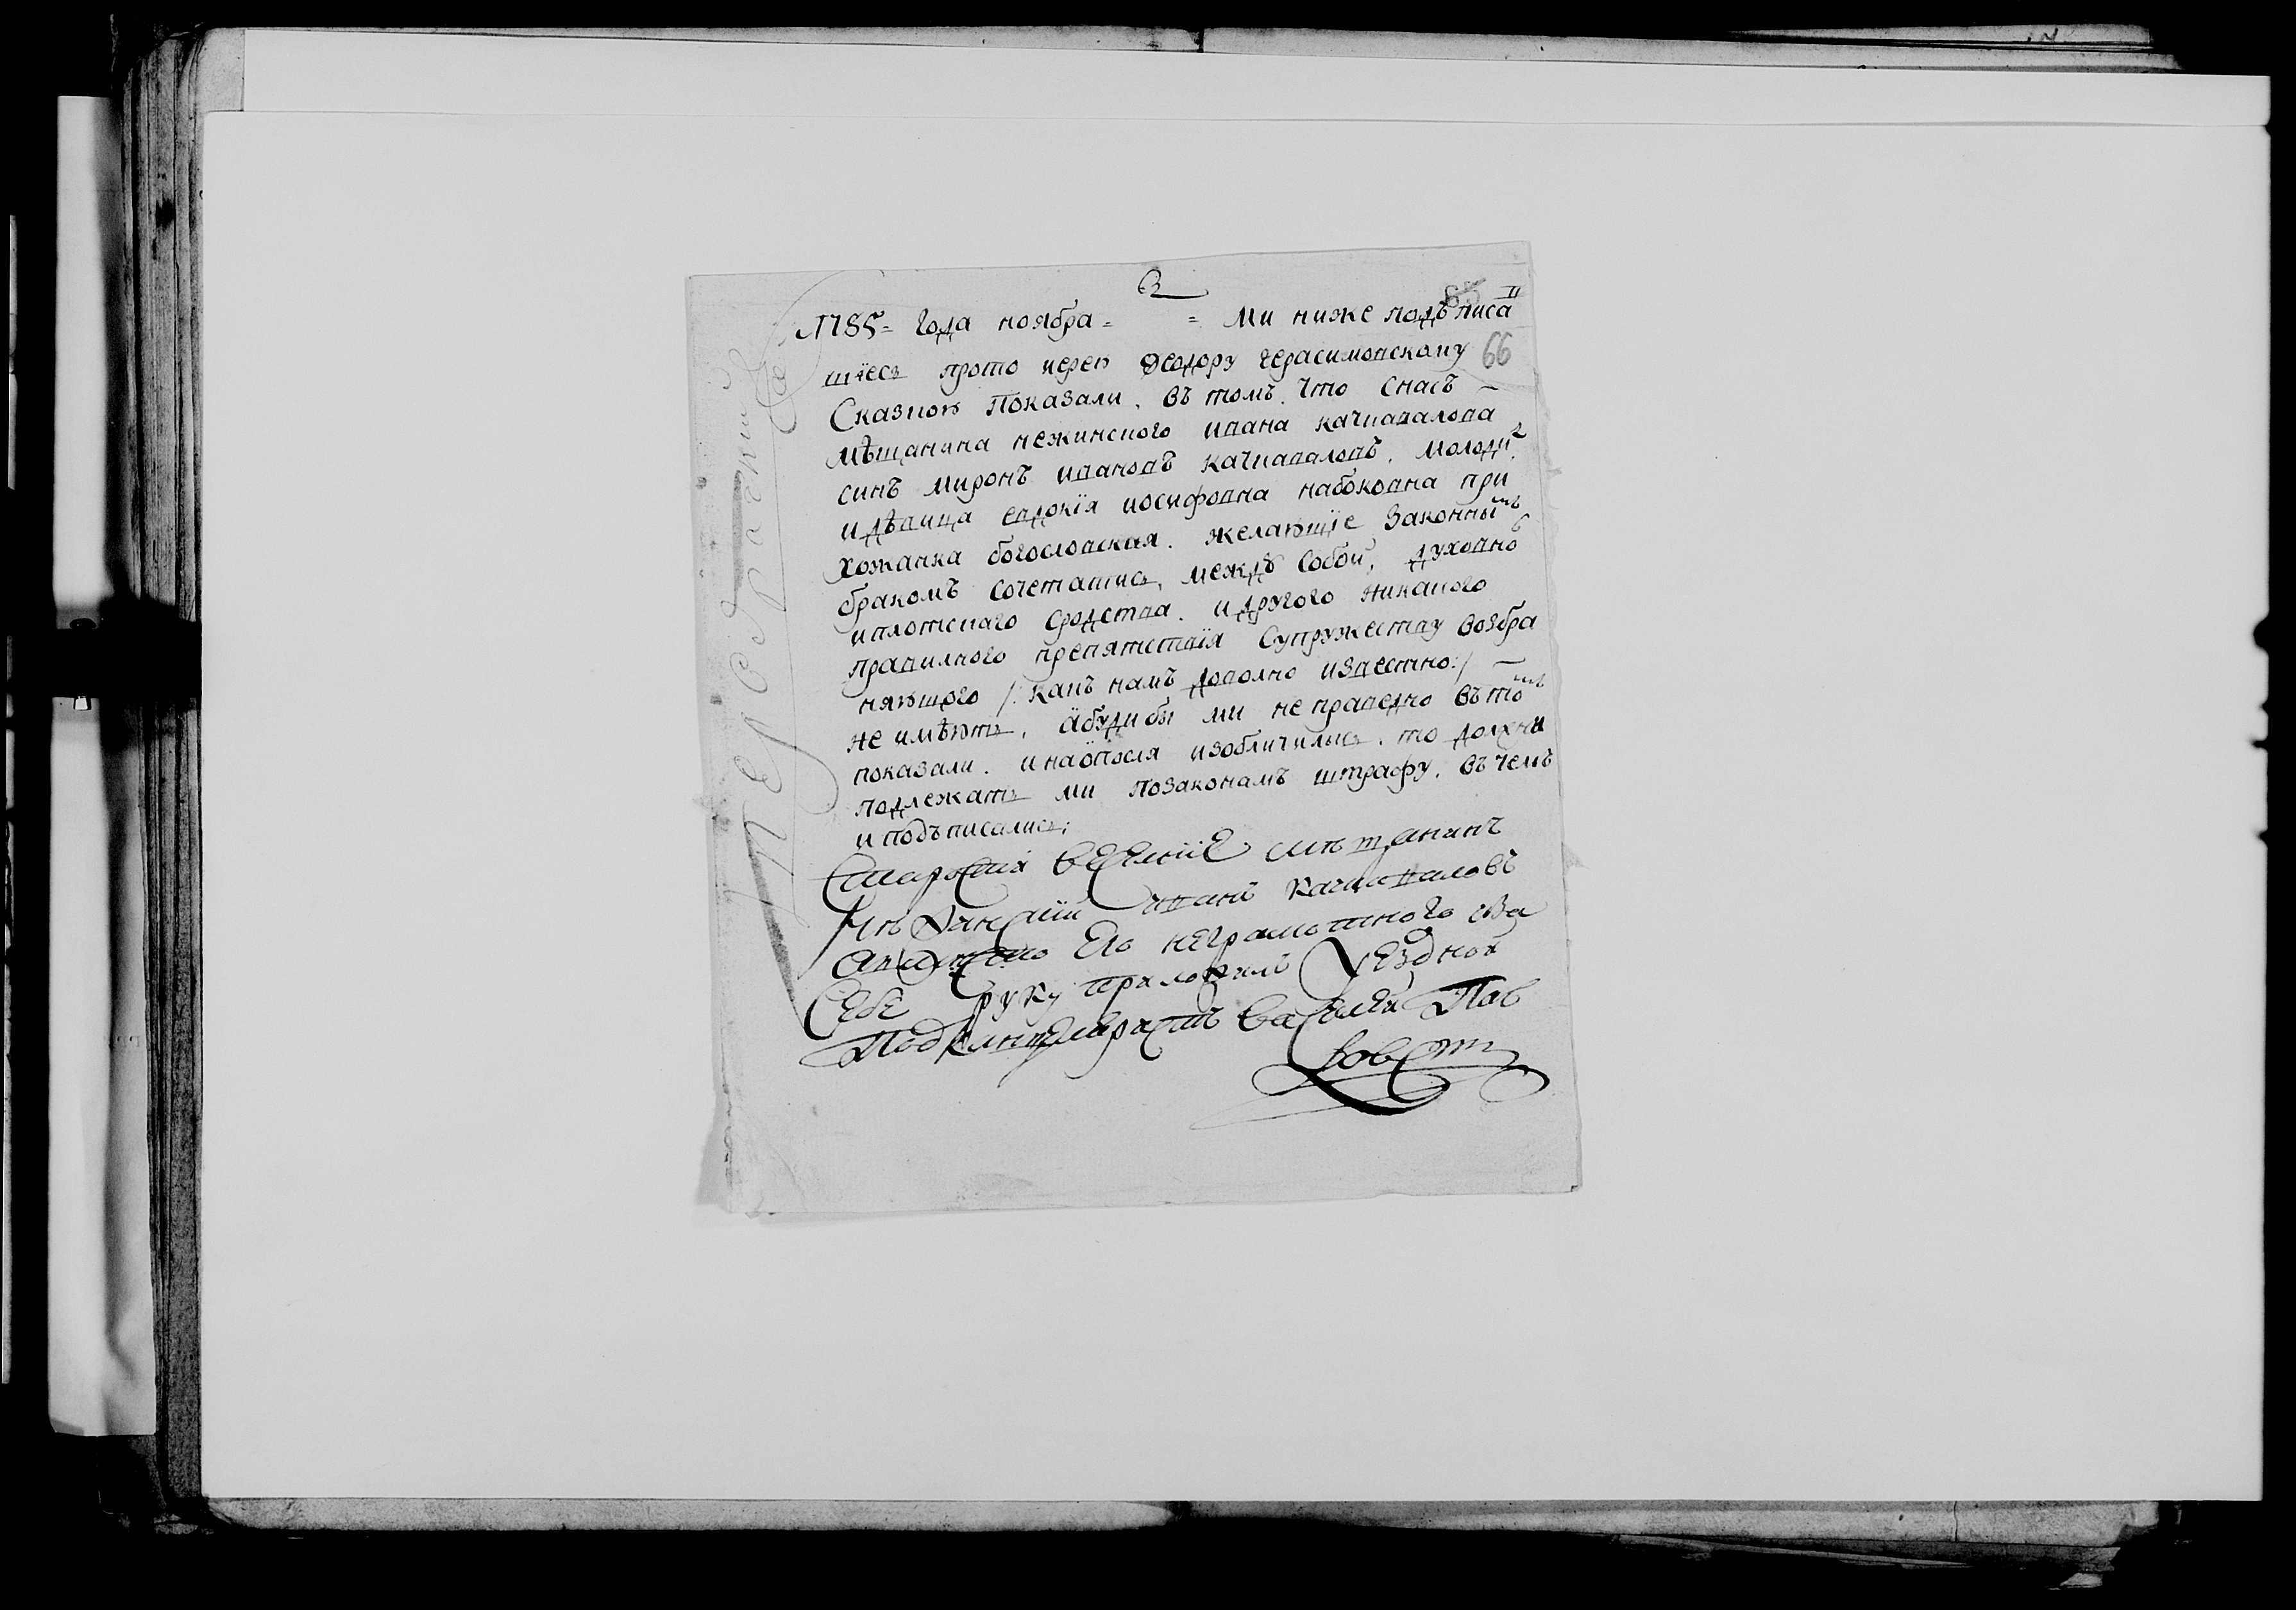 1785 = года ноябра = = Ми ниже подъписа
шіесь прото иерею Феодору Герасимовскому
Сказкою показали. въ томъ. что снасъ –
мѣщанина нежинского ивана качкавалова
синъ миронъ ивановъ качкаваловъ. молодик.
и дѣвица евдокія иосифовна набоковна при
хожанка богословская. желающіе законнымъ
бракомъ сочетатись, междѣ собой, духовного
и плотскаго сродства. и другого никакого
правилного препятствія супружеству возбра
няющого /: какъ намъ доволно известно :/ –
не имѣютъ. а буди би ми неправедно въ томъ
показали. и напосля изобличились. то должни
подлежать ми позаконамъ штрафу. въ чемъ
и подъписались;
мещанинъ
иванъ Качкаваловъ
его неграмотного
себе руку приложилъ уездной
Подканцеляристъ Василей Пав
ловст
65
66